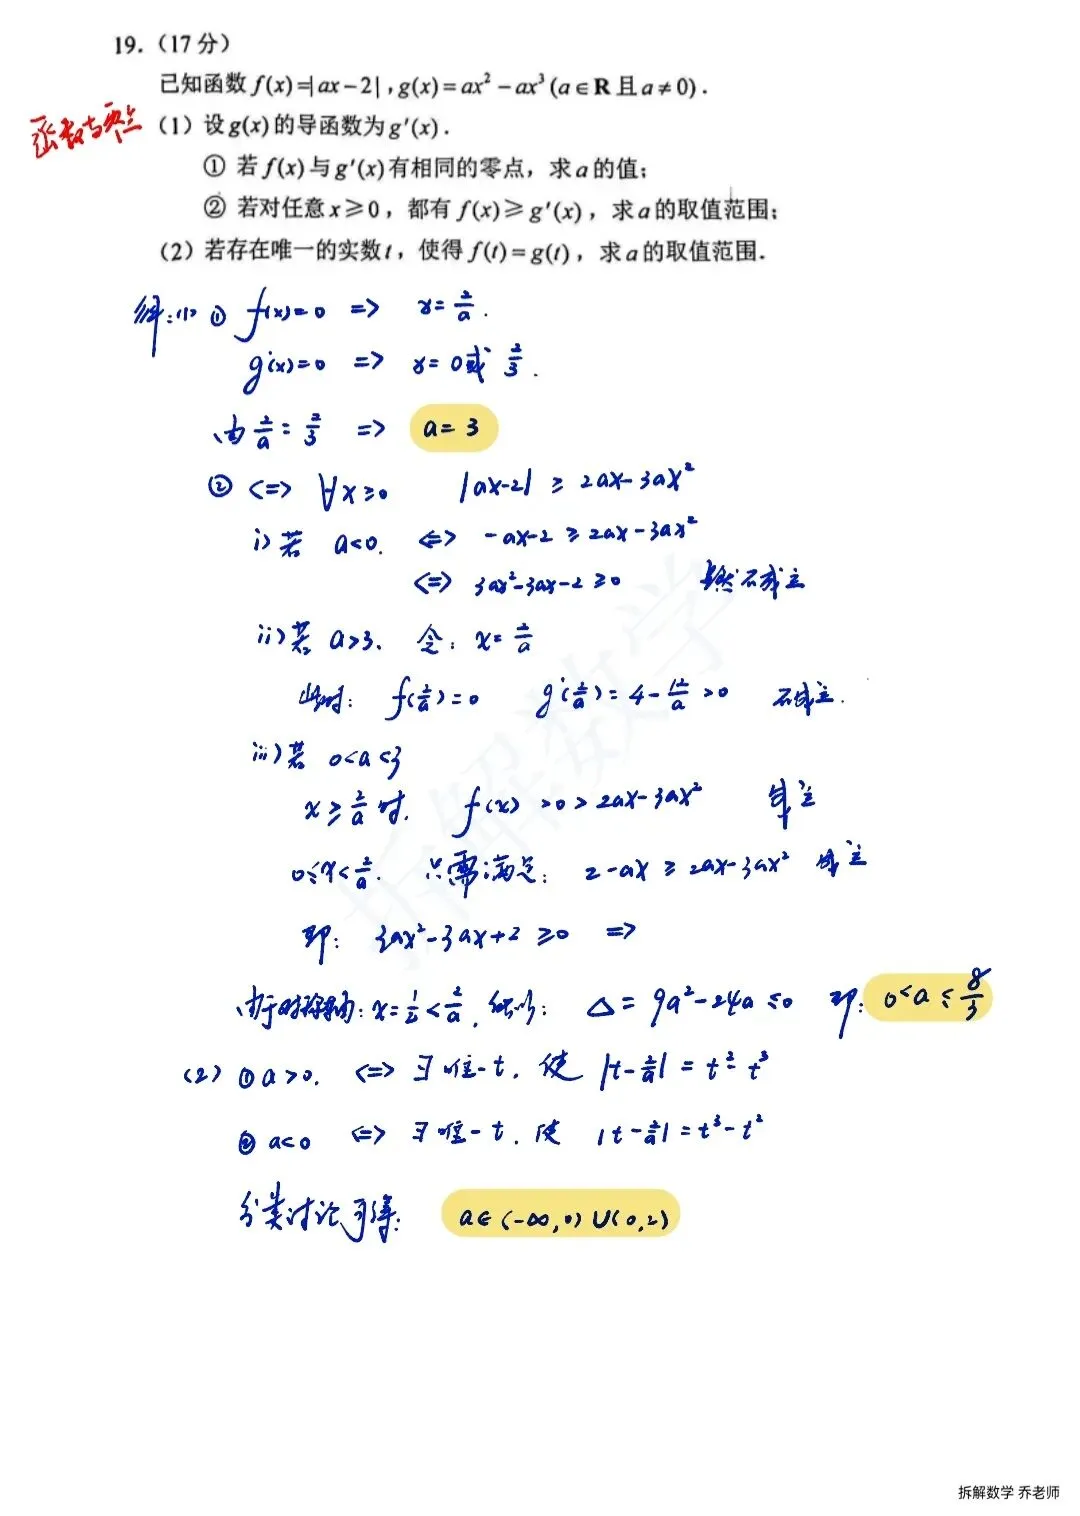 19.（17 分）
已知函数 f(x)=|ax-2|,g(x)=ax²-ax³(a∈R且a≠0).
函数与零点
（1）设g(x)的导函数为g′(x).
① 若f(x)与g′(x)有相同的零点，求a的值；
② 若对任意x≥0，都有f(x)≥g′(x)，求a的取值范围；
（2）若存在唯一的实数t，使得f(t)=g(t)，求a的取值范围.
解:(1) ① f(x)=0 => x=2/a.
g'(x)=0 => x=0或 2/3.
由 2/a=2/3 => a=3
② <=> ∀x≥0 |ax-2| ≥ 2ax-3ax²
i)若 a<0. <=> -ax-2 ≥ 2ax-3ax²
<=> 3ax²-3ax-2≥0 显然不成立
ii)若 a>3. 令: x=2/a
此时: f(2/a)=0 g'(2/a)=4-12/a>0 不成立.
iii)若 0<a≤3
x≥2/a时. f(x)>0>2ax-3ax² 成立
0≤x<2/a. 只需满足: 2-ax ≥ 2ax-3ax² 成立
即: 3ax²-3ax+2≥0 =>
由于对称轴: x=1/2<2/a, 所以: Δ=9a²-24a≤0 即: 0<a≤8/3
(2) ①a>0. <=> ∃唯一t. 使 |t-2/a|=t²-t³
②a<0 <=> ∃唯一t. 使 |t-2/a|=t³-t²
分类讨论可得: a∈(-∞,0)∪(0,2)
拆解数学
拆解数学 乔老师